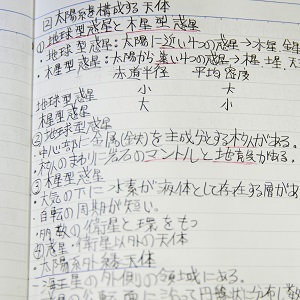 ② 太陽系を構成する天体
① 地球型惑星と木星型惑星
・地球型惑星:太陽に近い4つの惑星→水星、金星
・木星型惑星:太陽から遠い4つの惑星→木星、土星、天
赤道半径 平均密度
地球型惑星 小 大
木星型惑星 大 小
② 地球型惑星
・中心部に金属(鉄)を主成分とする核がある。
・核のまわりに岩石のマントルと地殻がある。
③ 木星型惑星
・大気の下に水素が液体として存在する層があ
・自転の周期が短い。
・多数の衛星と環をもつ
④ 惑星・衛星以外の天体
・太陽系外縁天体
・海王星の外側の領域にある。